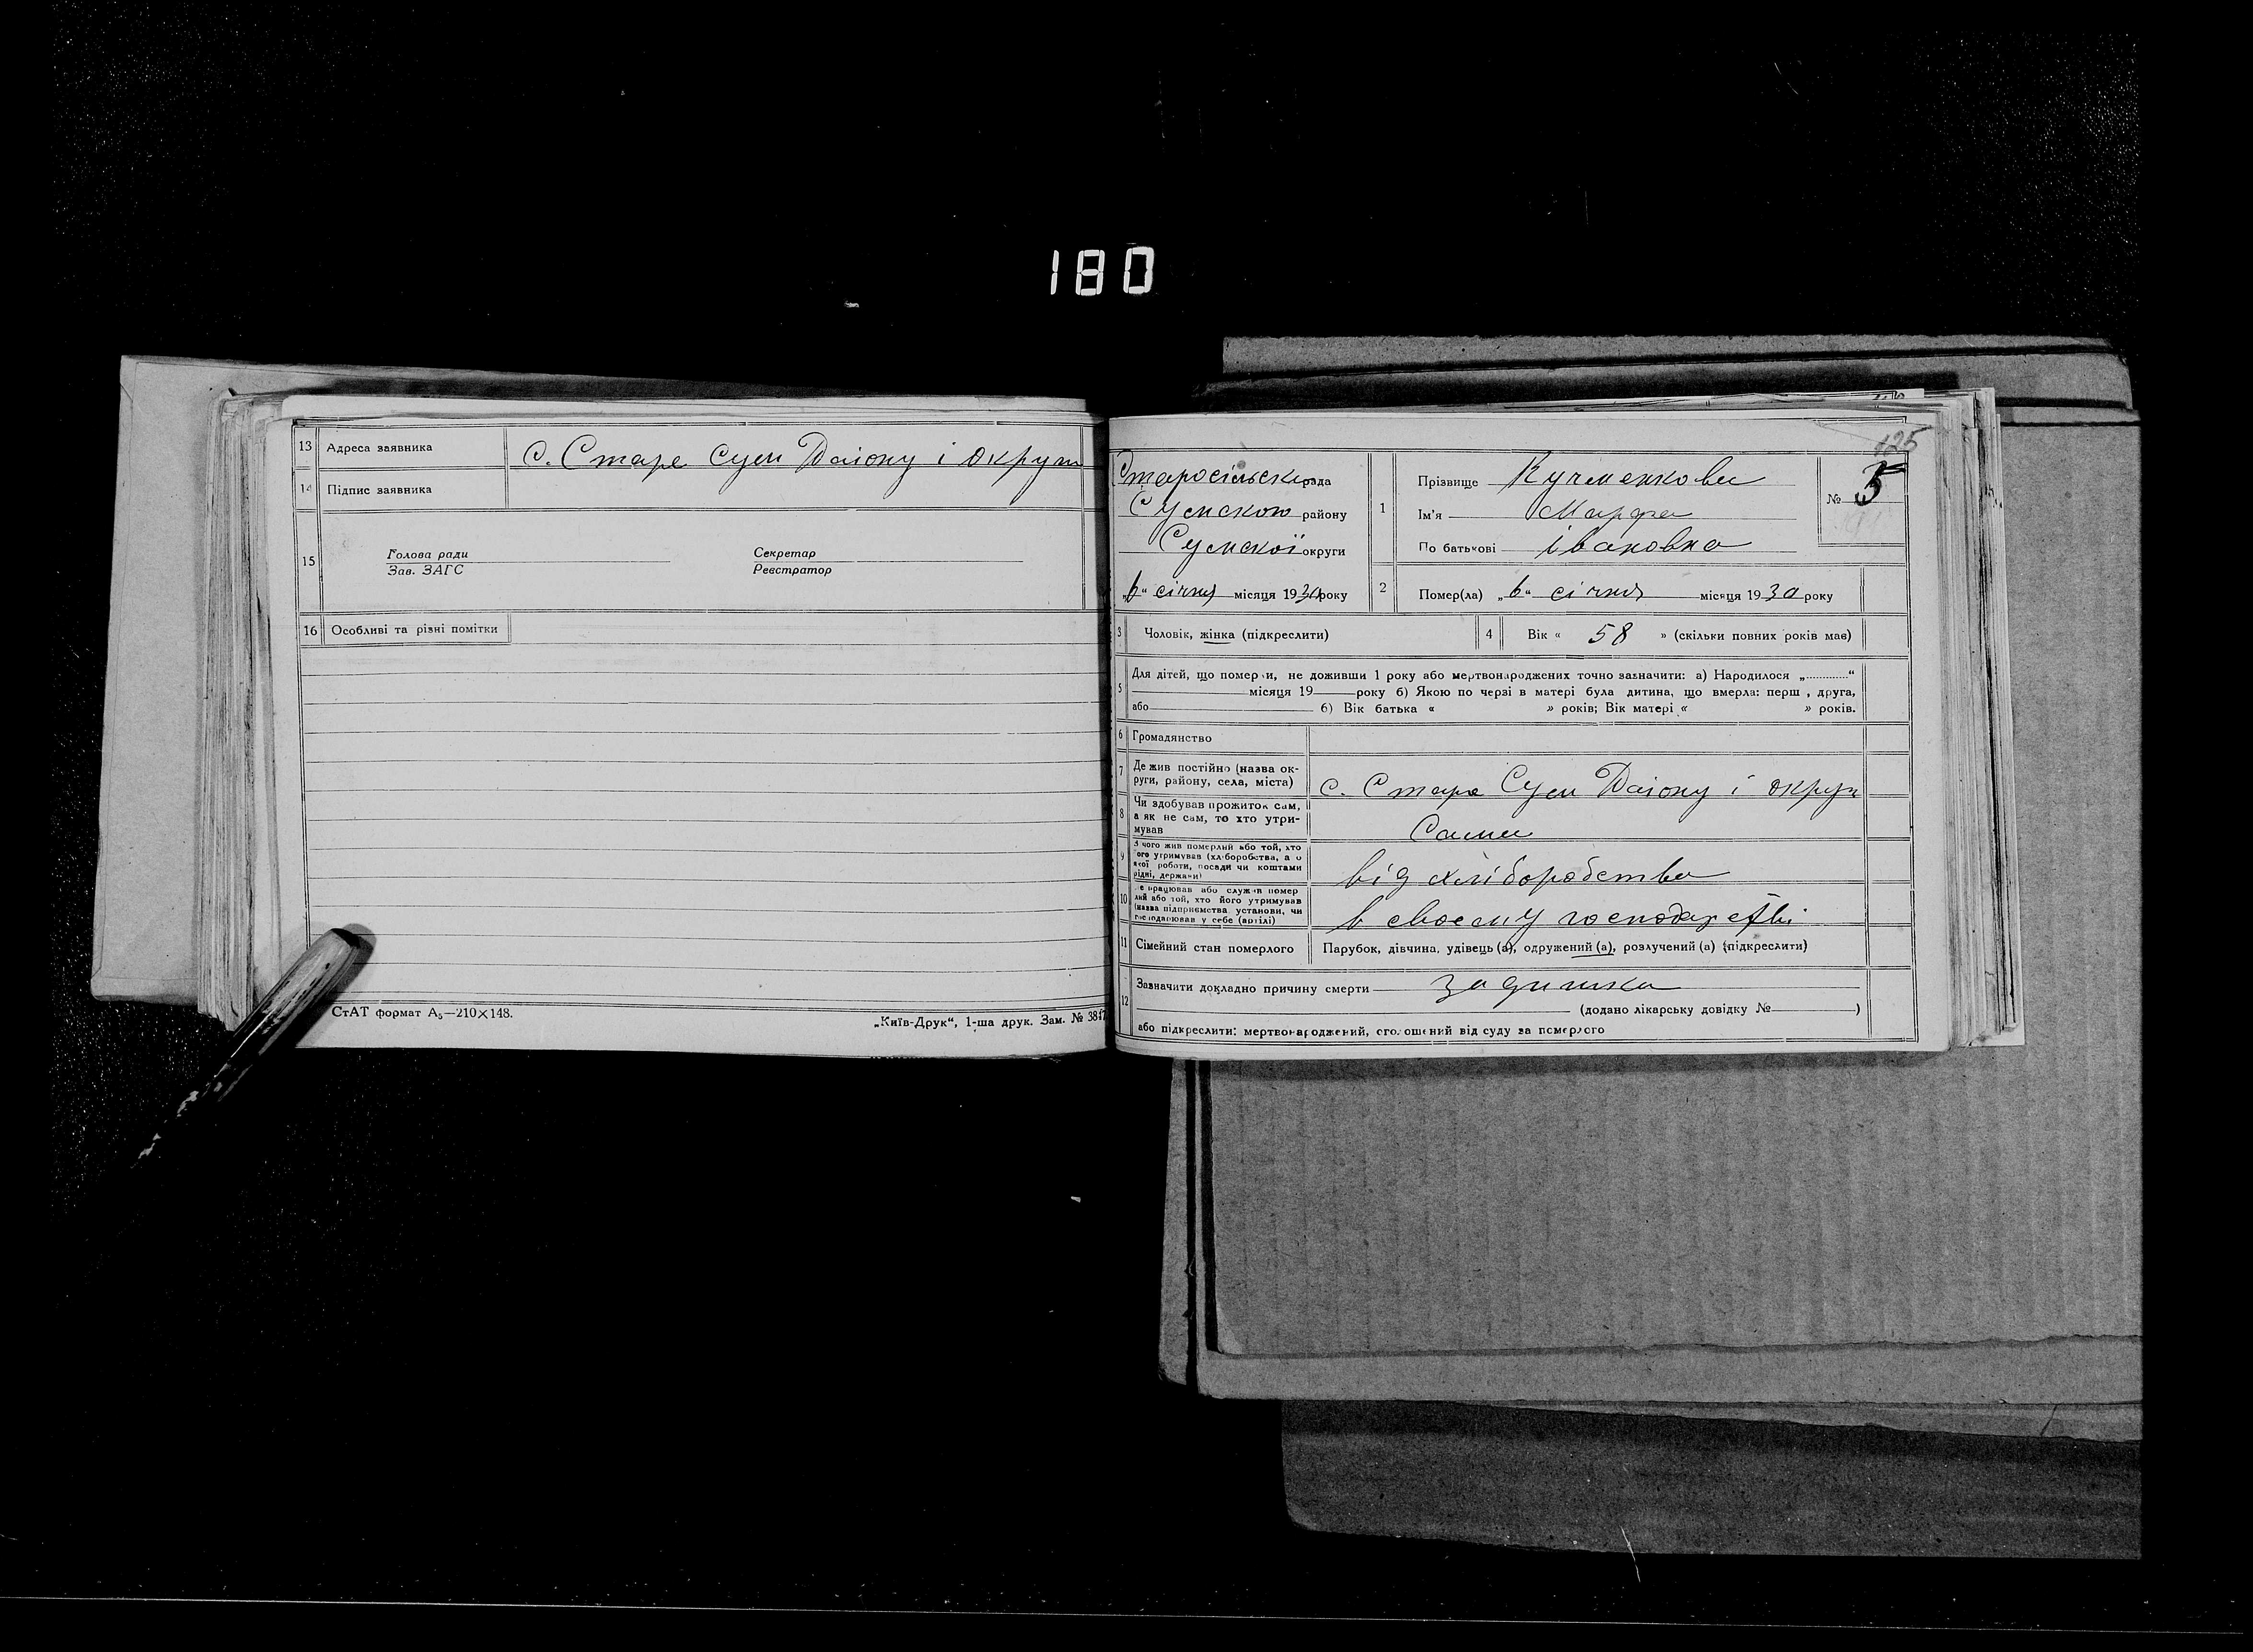 180
13 Адреса заявника с. Старе Сум Району і округи
14 Підпис заявника
15 Голова ради Секретар
Зав. ЗАГС Реєстратор
16 Особливі та різні помітки
СтАТ формат А₅—210×148. „Київ-Друк“, 1-ша друк. Зам. №
125
Старосільська рада
Сумского району
Сумскої округи
„6“ січня місяця 1930 року
1 Прізвище Кучменкова
Ім'я Марфа
По батькові івановна
№ 5
2 Помер(ла) „6“ січня місяця 1930 року
3 Чоловік, жінка (підкреслити) 4 Вік « 58 » (скільки повних років має)
5 Для дітей, що померли, не доживши 1 року або мертвонароджених точно зазначити: а) Народилося „............“
місяця 19 року б) Якою по черзі в матері була дитина, що вмерла: перш , друга,
або б) Вік батька « » років; Вік матері « » років.
6 Громадянство
7 Де жив постійно (назва ок-
руги, району, села, міста) с. Старе Сум Району і округи
8 Чи здобував прожиток сам,
а як не сам, то хто утри-
мував Сама
9 З чого жив померлий або той, хто
його утримував (хліборобства, а о
якої роботи, посади чи коштами
рідні, держави) від хліборобства
10 Де працював або служив помер
лий або той, хто його утримував
(назва підприємства установи, чи
господарював у себе (артілі) в своєму господарстві
11 Сімейний стан померлого Парубок, дівчина, удівець (а), одружений (а), розлучений (а) (підкреслити)
12 Зазначити докладно причину смерти задишка
(додано лікарську довідку № )
або підкреслити: мертвонароджений, оголошений від суду за померлого